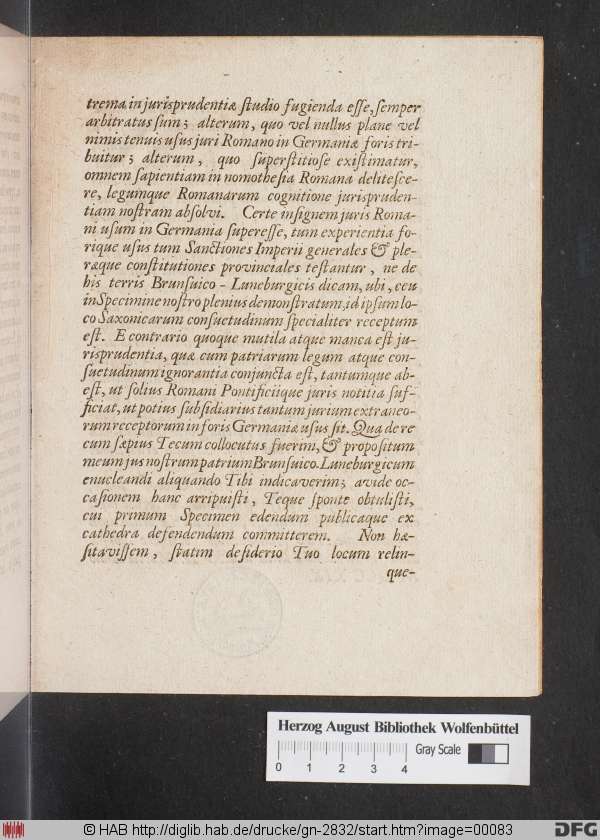 trema in jurisprudentiæ studio fugienda esse, semper
arbitratus sum; alterum, quo vel nullus plane vel
nimis tenuis usus juri Romano in Germaniæ foris tri-
buitur; alterum, quo superstitiose existimatur,
omnem sapientiam in nomothesia Romana delitesce-
re, legumque Romanarum cognitione jurispruden-
tiam nostram absolvi. Certe insignem juris Roma-
ni usum in Germania superesse, tum experientia fo-
rique usus tum Sanctiones Imperii generales & ple-
ræque constitutiones provinciales testantur, ne de
his terris Brunsuico-Luneburgicis dicam, ubi, ceu
in Specimine nostro plenius demonstratum, id ipsum lo-
co Saxonicarum consuetudinum specialiter receptum
est. E contrario quoque mutila atque manca est ju-
risprudentia, quæ cum patriarum legum atque con-
suetudinum ignorantia conjuncta est, tantumque ab-
est, ut solius Romani Pontificiique juris notitia suf-
ficiat, ut potius subsidiarius tantum jurium extraneo-
rum receptorum in foris Germaniæ usus sit. Qua de re
cum sæpius Tecum collocutus fuerim, & propositum
meum jus nostrum patrium Brunsuico-Luneburgicum
enucleandi aliquando Tibi indicaverim; avide oc-
casionem hanc arripuisti, Teque sponte obtulisti,
cui primum Specimen edendum publicaque ex
cathedra defendendum committerem. Non hæ-
sitavissem, statim desiderio Tuo locum relin-
que-
Herzog August Bibliothek Wolfenbüttel
Gray Scale
0 1 2 3 4
© HAB http://diglib.hab.de/drucke/gn-2832/start.htm?image=00083
DFG